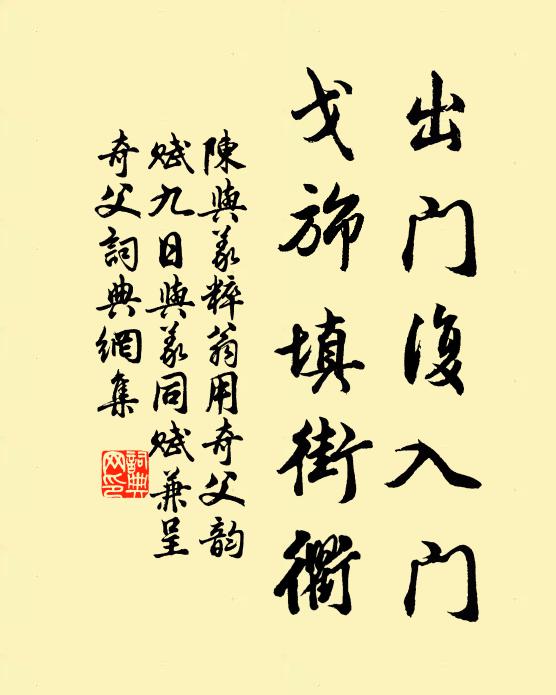 出門復入門
戈斾填街衢
陳與義粹翁用奇父韵
賦九日與義同賦兼呈
奇父詞典網集
詞典網印